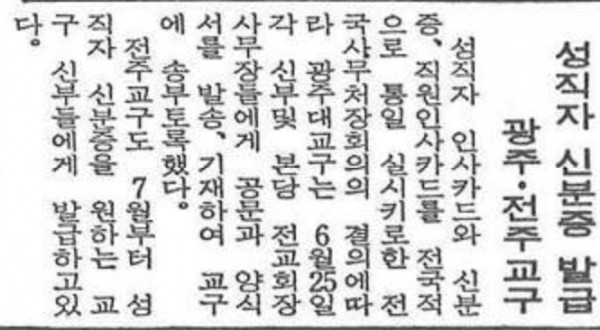 성직자 신분증 발급
광주·전주교구
성직자 인사카드와 신분
증、직원인사카드를 전국적
으로 통일 실시키로한 전
국사무처장회의의 결의에따
라 광주대교구는 6월25일
각 신부및 본당 전교회장
사무장들에게 공문과 양식
서를 발송、기재하여 교구
에 송부토록했다。
전주교구도 7월부터 성
직자 신분증을 원하는 교
구 신부들에게 발급하고있
다。